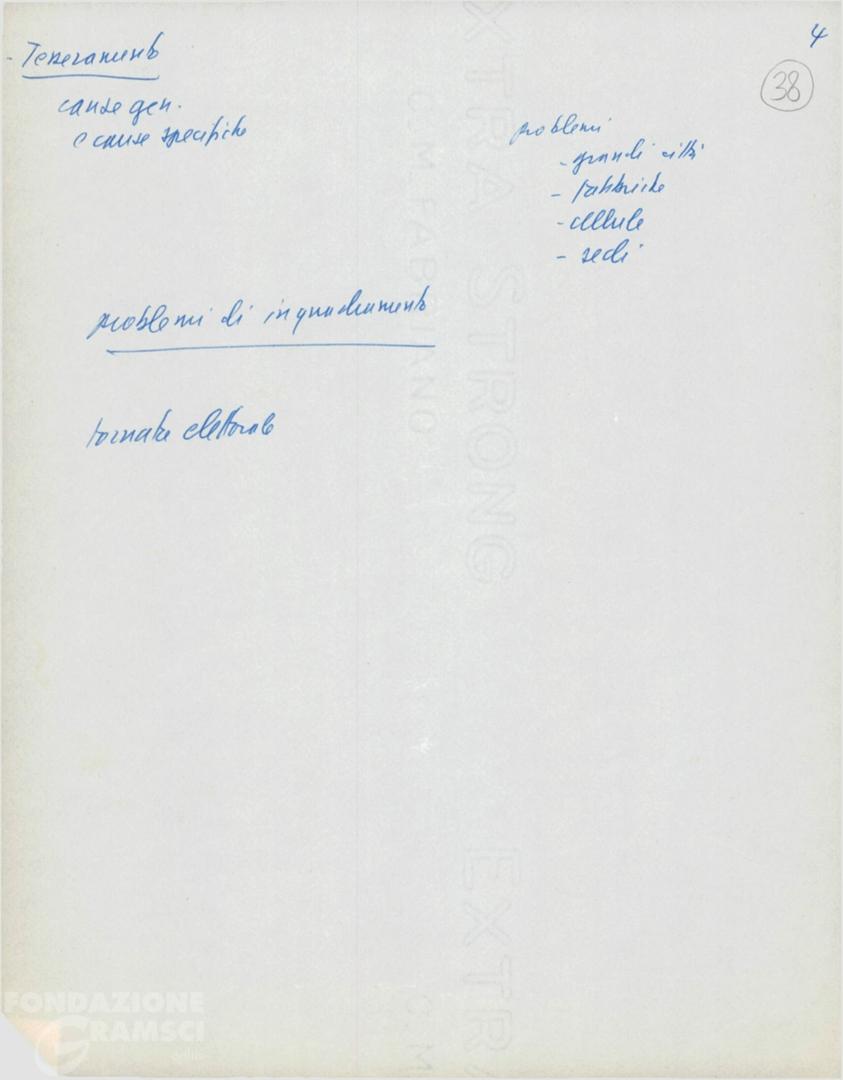 4
38
- Tesseramento
cause gen.
e cause specifiche
problemi
- grandi città
- fabbriche
- cellule
- sedi
problemi di inquadramento
tornate elettorale
EXTRA STRONG
C.M. FABRIANO
EXTRA
C.M
FONDAZIONE
GRAMSCI